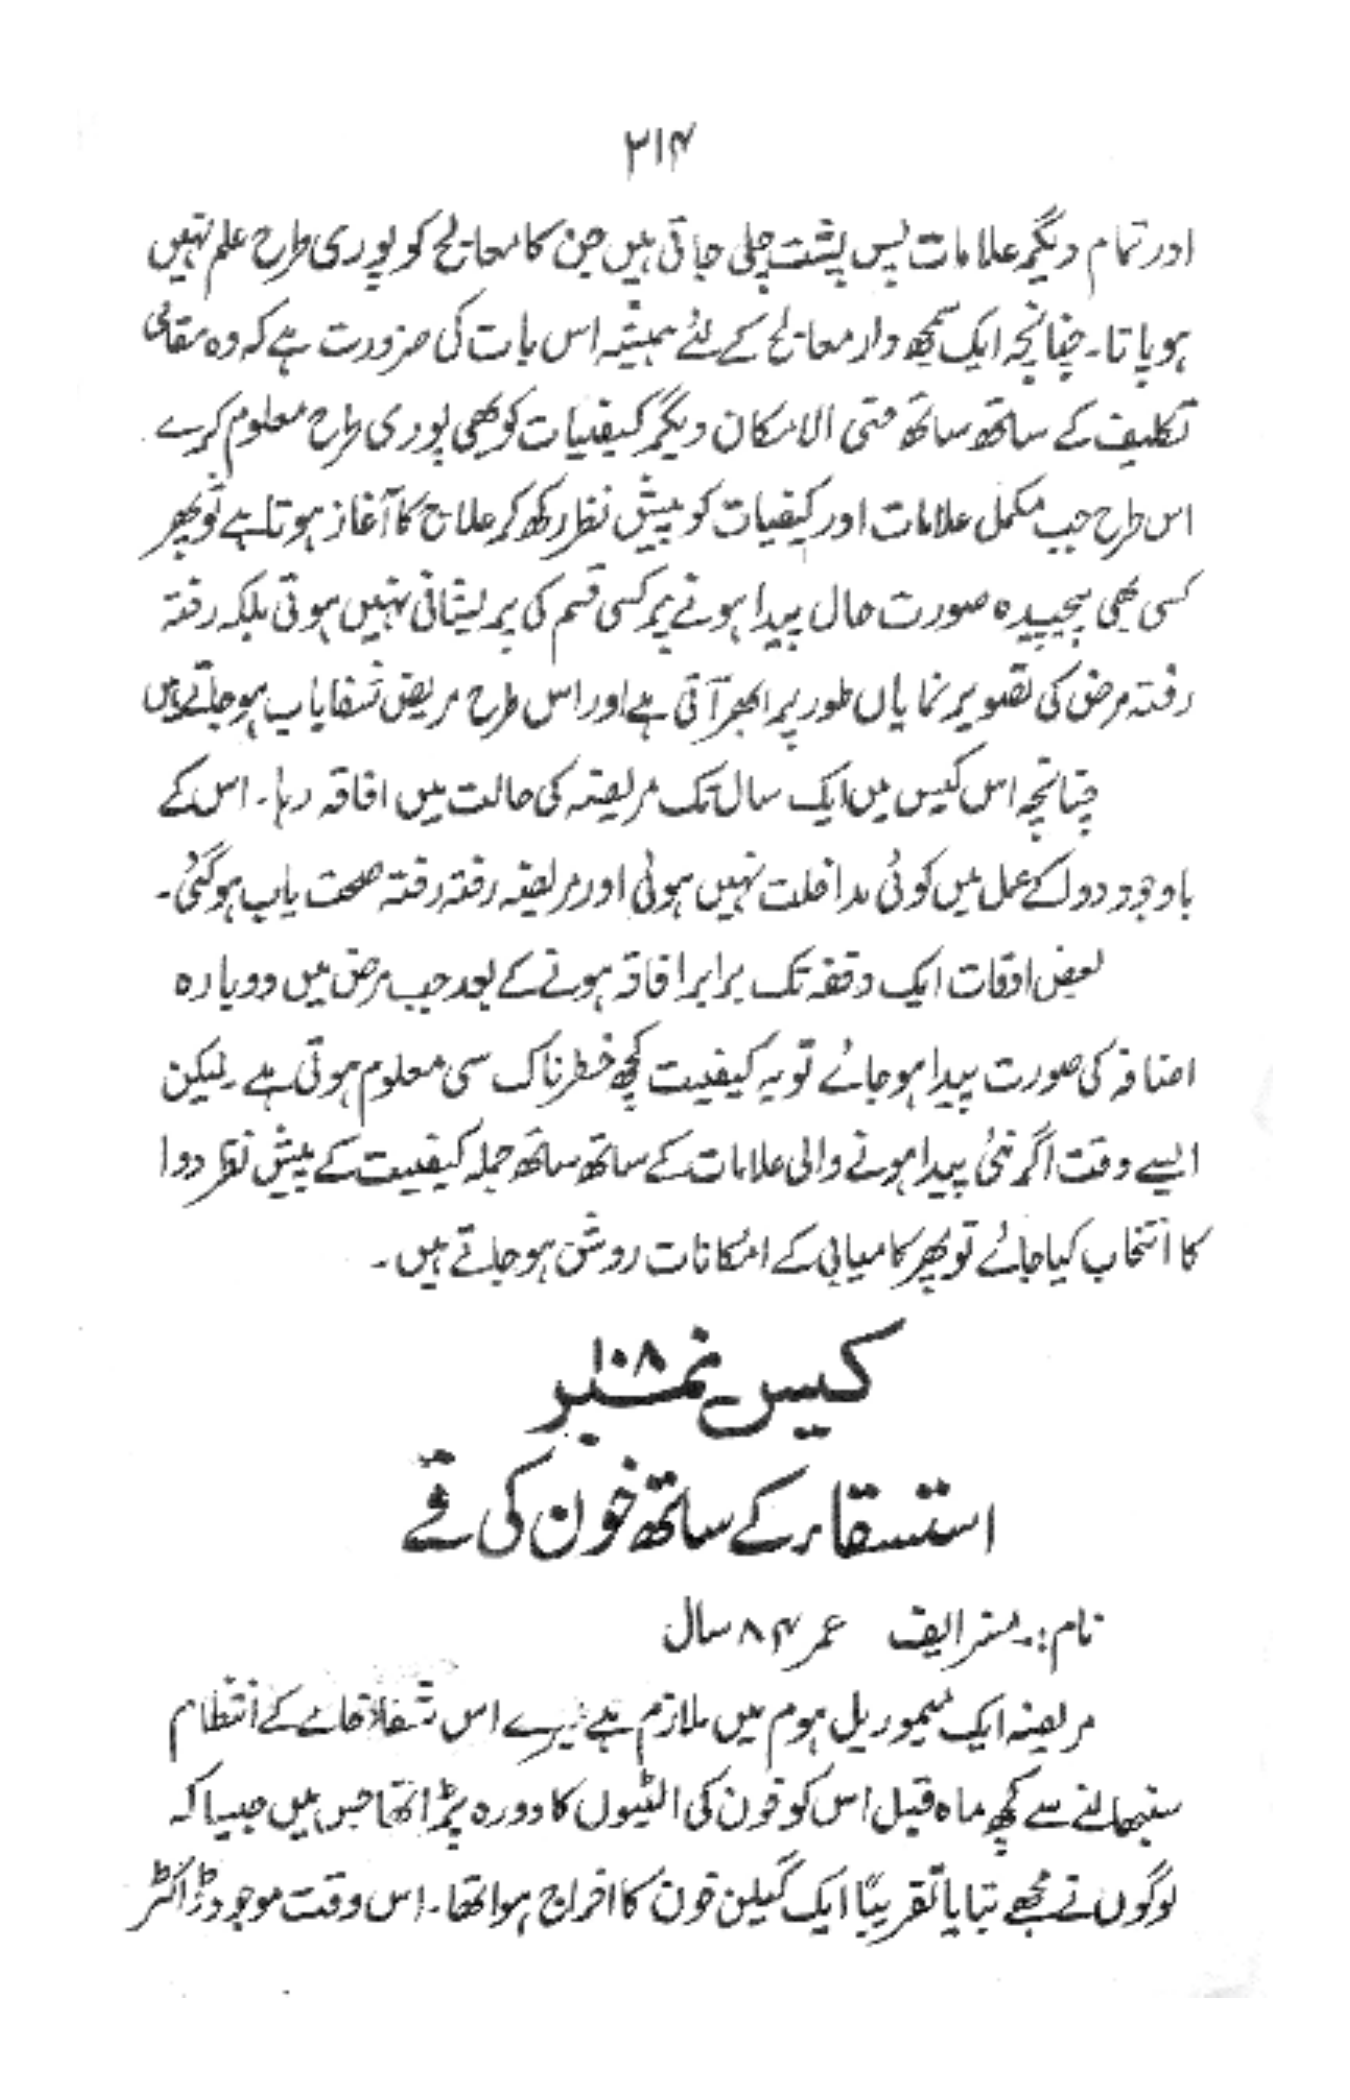 ۲۱۴
اور تمام دیگر علامات پس پشت چلی جاتی ہیں جن کا معالج کو پوری طرح علم نہیں
ہو پاتا۔ چنانچہ ایک سمجھ دار معالج کے لئے ہمیشہ اس بات کی ضرورت ہے کہ وہ مقامی
تکلیف کے ساتھ ساتھ حتی الامکان دیگر کیفیات کو بھی پوری طرح معلوم کرے
اس طرح جب مکمل علامات اور کیفیات کو پیش نظر رکھ کر علاج کا آغاز ہوتا ہے تو پھر
کسی بھی پیچیدہ صورت حال پیدا ہونے پر کسی قسم کی پریشانی نہیں ہوتی بلکہ رفتہ
رفتہ مرض کی تصویر نمایاں طور پر ابھر آتی ہے اور اس طرح مریض شفایاب ہو جاتے ہیں
چنانچہ اس کیس میں ایک سال تک مریضہ کی حالت میں افاقہ رہا۔ اس کے
باوجود دوا کے عمل میں کوئی مداخلت نہیں ہوئی اور مریضہ رفتہ رفتہ صحت یاب ہو گئی۔
بعض اوقات ایک وقفہ تک برابر افاقہ ہونے کے بعد جب مرض میں دوبارہ
اضافہ کی صورت پیدا ہو جائے تو یہ کیفیت کچھ خطرناک سی معلوم ہوتی ہے۔ لیکن
ایسے وقت اگر نئی پیدا ہونے والی علامات کے ساتھ ساتھ جملہ کیفیت کے پیش نظر دوا
کا انتخاب کیا جائے تو پھر کامیابی کے امکانات روشن ہو جاتے ہیں۔
کیس نمبر ۱۰۸
استسقاء کے ساتھ خون کی قے
نام :۔ مسز ایف عمر ۸۴ سال
مریضہ ایک میموریل ہوم میں ملازم ہے میرے اس شفاخانے کے انتظام
سنبھالنے سے کچھ ماہ قبل اس کو خون کی الٹیوں کا دورہ پڑا تھا جس میں جیسا کہ
لوگوں نے مجھے بتایا تقریباً ایک گیلن خون کا اخراج ہوا تھا۔ اس وقت موجود ڈاکٹر